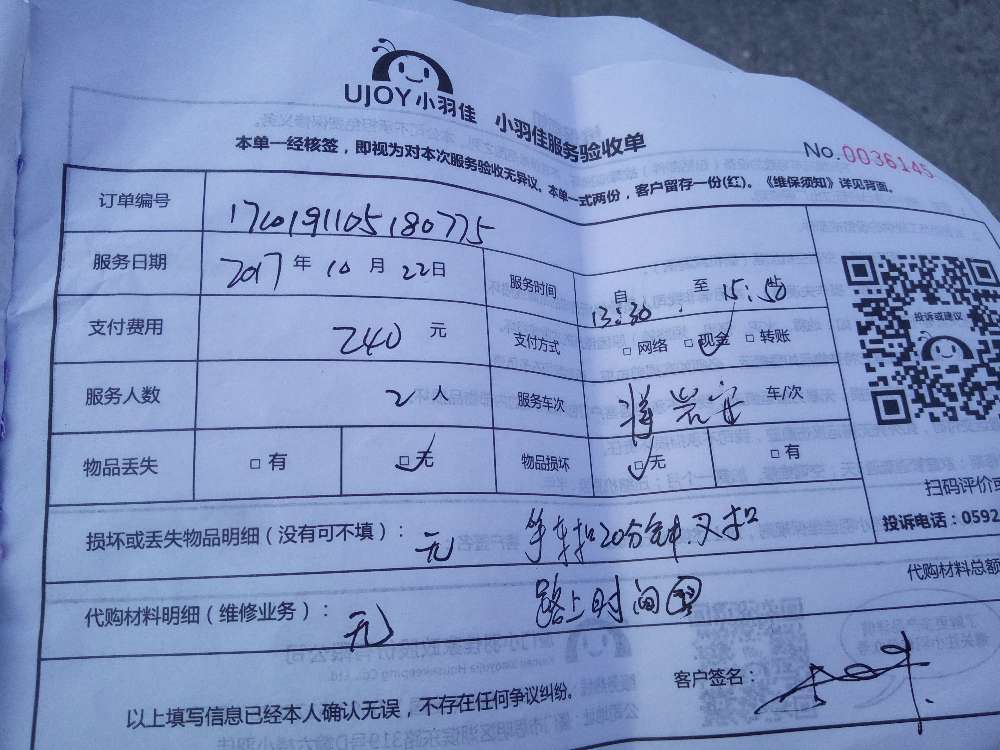 UJOY小羽佳 小羽佳服务验收单
No.0036145
本单一经核签，即视为对本次服务验收无异议。本单一式两份，客户留存一份(红)。《维保须知》详见背面。
订单编号 1720191105180775
服务日期 2017年10月22日 服务时间 自13:30至15:50
支付费用 240元 支付方式 □网络 □现金 □转账
服务人数 2人 服务车次 车/次
物品丢失 □有 □无 物品损坏 □无 □有
投诉或建议
扫码评价或
投诉电话：0592
损坏或丢失物品明细（没有可不填）：无 20分钟.又扣
代购材料总额
代购材料明细（维修业务）：无 路上时间
以上填写信息已经本人确认无误，不存在任何争议纠纷。 客户签名：